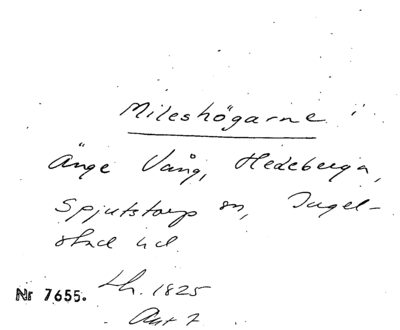 Mileshögarne
Änge Vång, Hedeberga,
Spjutstorp sn, Ingel-
stad hd
Lh. 1825
Nr 7655.
Akt 7